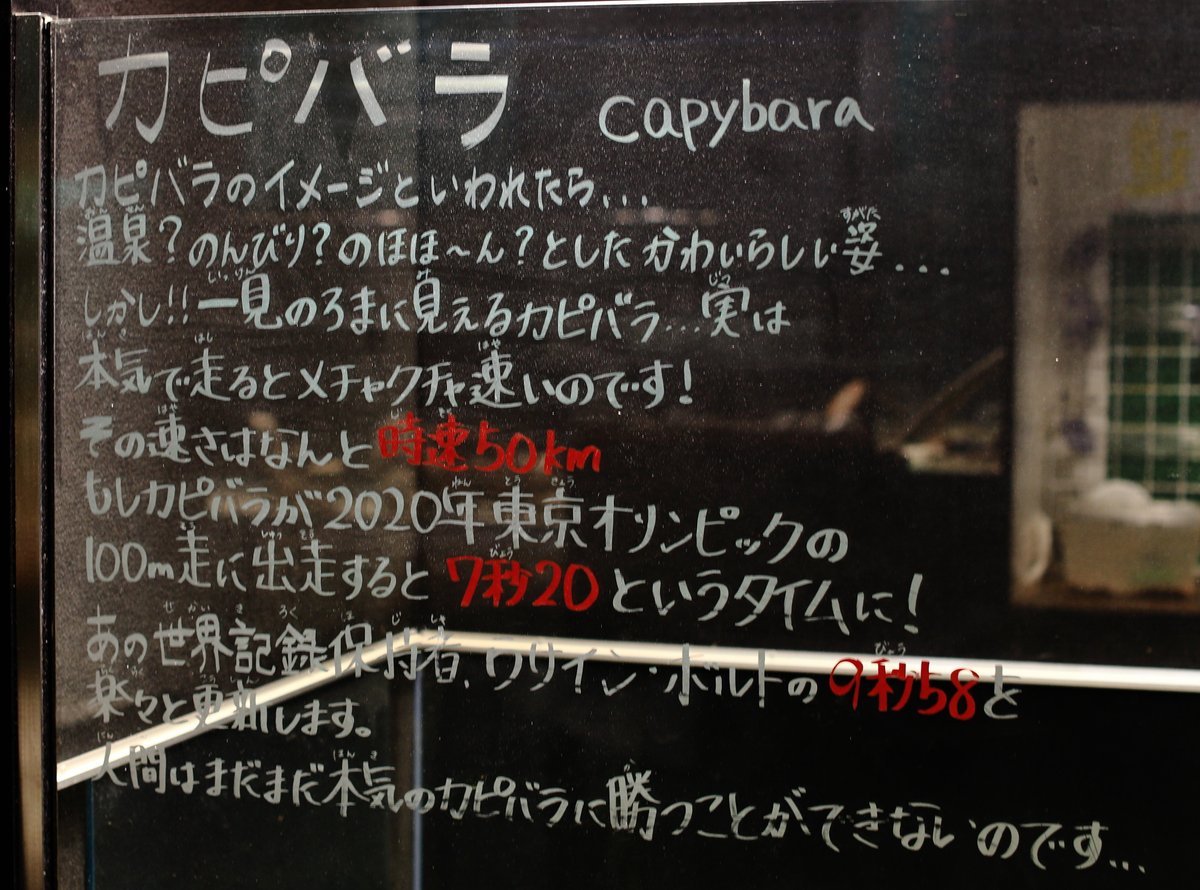 カピバラ capybara
カピバラのイメージといわれたら...
温泉?のんびり?のほほ〜ん?としたかわいらしい姿...
しかし!!一見のろまに見えるカピバラ...実は
本気で走るとメチャクチャ速いのです!
その速さはなんと時速50km
もしカピバラが2020年東京オリンピックの
100m走に出走すると7秒20というタイムに!
あの世界記録保持者、ウサイン・ボルトの9秒58を
楽々と更新します。
人間はまだまだ本気のカピバラに勝つことができないのです...